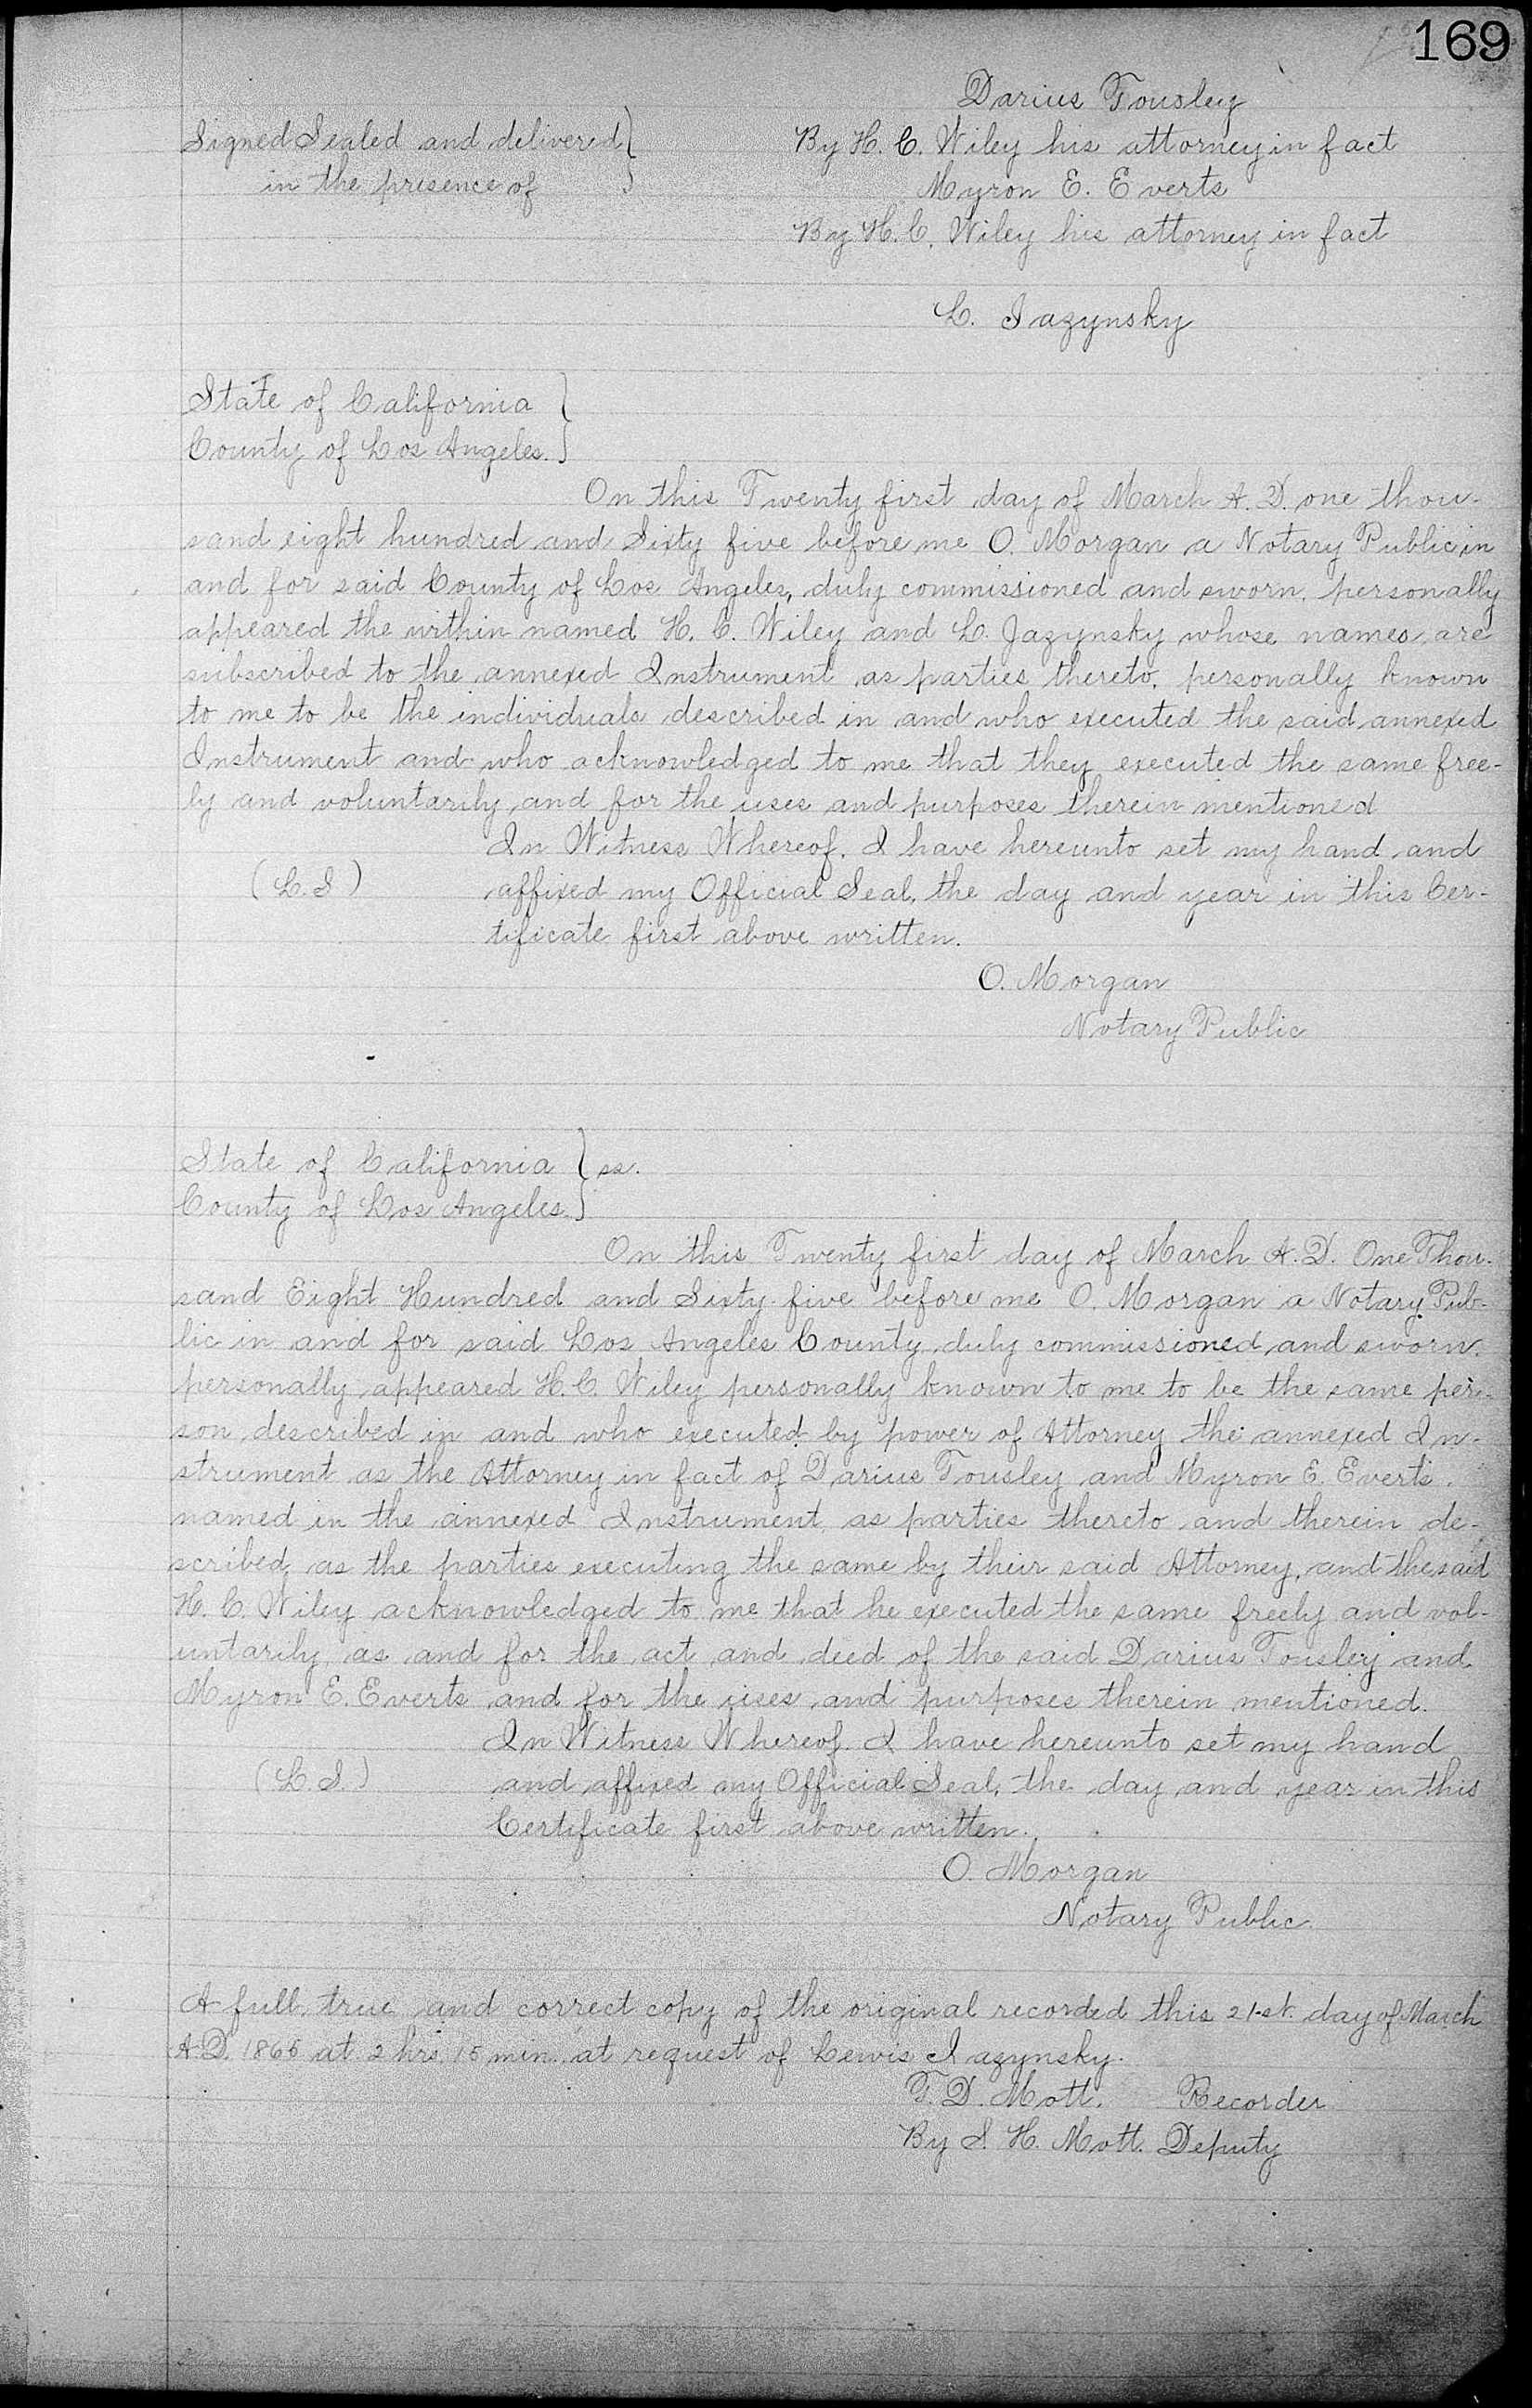 169
Darius Tousley
Signed Sealed and delivered } By H. C. Wiley his attorney in fact
in the presence of Myron E. Everts
By H. C. Wiley his attorney in fact
L. Jazynsky
State of California }
County of Los Angeles. }
On this Twenty first day of March A. D. one thou-
sand eight hundred and Sixty five before me O. Morgan a Notary Public in
and for said County of Los Angeles, duly commissioned and sworn, personally
appeared the within named H. C. Wiley and L. Jazynsky whose names are
subscribed to the annexed Instrument as parties thereto, personally known
to me to be the individuals described in and who executed the said annexed
Instrument and who acknowledged to me that they executed the same free-
ly and voluntarily and for the uses and purposes therein mentioned
In Witness Whereof, I have hereunto set my hand and
(L. S) affixed my Official Seal, the day and year in this Cer-
tificate first above written.
O. Morgan
Notary Public
State of California } ss.
County of Los Angeles. }
On this Twenty first day of March A. D. One Thou-
sand Eight Hundred and Sixty five before me O. Morgan a Notary Pub-
lic in and for said Los Angeles County duly commissioned and sworn.
personally appeared H. C. Wiley personally known to me to be the same per-
son described in and who executed by power of Attorney the annexed In-
strument as the Attorney in fact of Darius Tousley and Myron E. Everts.
named in the annexed Instrument as parties thereto and therein de-
scribed as the parties executing the same by their said Attorney, and the said
H. C. Wiley acknowledged to me that he executed the same freely and vol-
untarily as and for the act and deed of the said Darius Tousley and
Myron E. Everts and for the uses and purposes therein mentioned.
In Witness Whereof. I have hereunto set my hand
(L. S.) and affixed my Official Seal, the day and year in this
Certificate first above written.
O. Morgan
Notary Public.
A full true and correct copy of the original recorded this 21st. day of March
A. D. 1865 at 2 hrs. 15 min. at request of Lewis Jazynsky.
T. D. Mott. Recorder
By S. H. Mott. Deputy